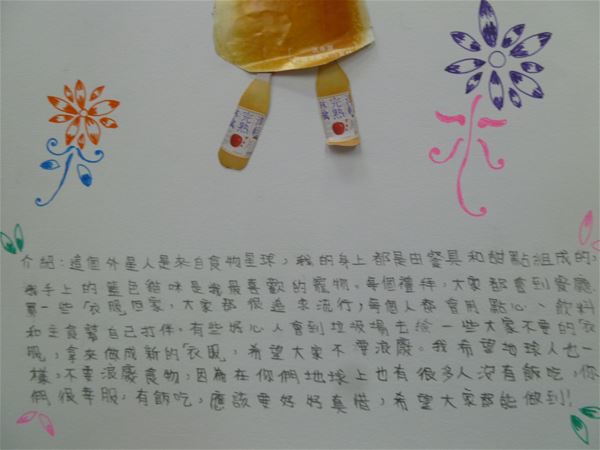 完熟
完熟
介紹：這個外星人是來自食物星球，我的身上都是由餐具和甜點組成的，
我手上的籃色貓咪是我最喜歡的寵物。每個禮拜，大家都會到餐廳
買一些「衣服」回家，大家都很追求流行，每個人都會用點心、飲料
和主食幫自己打伴。有些好心人會到垃圾場去撿一些大家不要的「衣
服」，拿來做成新的「衣服」，希望大家不要浪廢。我希望地球人也一
樣，不要浪廢食物，因為在你們地球上也有很多人沒有飯吃，你
們很幸服，有飯吃，應該要好好真惜，希望大家都能做到！